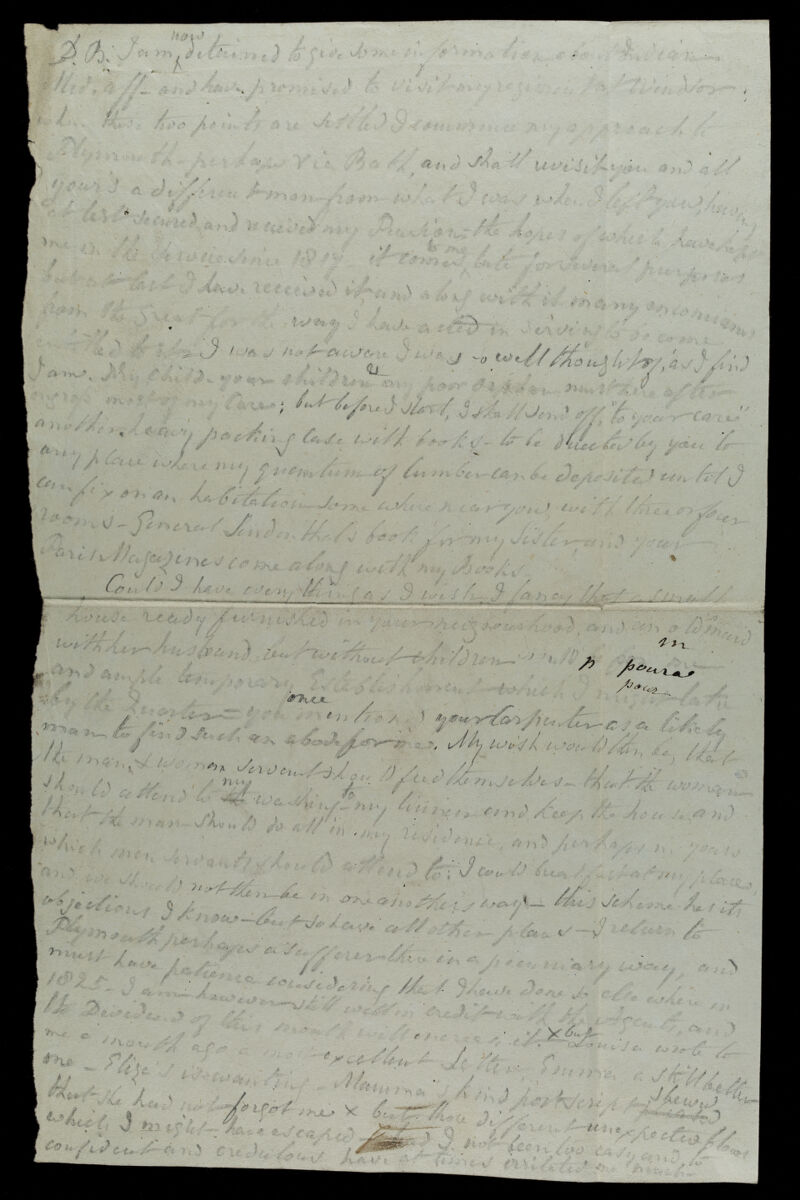 D. B. I am now detained to give some information about Indian
Med. aff– and have promised to visit my regiment at Windsor.
when these two points are settled I commence my approach to
Plymouth – perhaps via Bath, and shall revisit you and all
yours a different man from what I was when I left you, having
at last secured and received my Pension – the hopes of which have kept
me in the service since 1819 it comes to me, late for several purposes
but at last I have received it, and along with it many encomiums
from the Great for the way I have acted in service to become
entitled to it: I was not aware I was so well thought of, as I find
I am. My child – your children & my poor orphan must hereafter
engross most of my care; but before I start, I shall send off, to your care
another heavy packing case with books – to be directed by you to
any place where my quantum of lumber can be deposited until I
can fix on an habitation some where near you with three or four
rooms – General Lindenthal's book for my Sister, and your
Paris Magazines come along with my Books
Could I have every thing as I wish, I fancy that a small
house ready furnished in your neighbourhood, and an old maid
with her husband, but without children
n poura m
pour
and ample temporary Establishment which I might take
by the Quarter – you once mentioned your Carpenter as a likely
man to find such an abode for me. My wish would then be, that
the man & woman servant should feed themselves – that the woman
should attend to my washing – to my linen and keep the house and
that the man should do all in my residence, and perhaps in yours
which men servants should attend to: I could breakfast at my place,
and we should not then be in one another's way – this scheme has its
objections I know – but so have all other plans – I return to
Plymouth perhaps a sufferer there in a pecuniary way, and
must have patience considering that I have done so elsewhere in
1825 – I am however still well in credit with the Agents, and
the Dividend of this month will increase it. × but Louisa wrote to
me a month ago a most excellent Letter, Emma a still better
one – Eliza's is wanting – Mamma's kind postscript shewed
that she had not forgot me × but thou different unexpected flows
which I might have escaped had I not been too easy and too
confident and credulous have at times irritated me much –